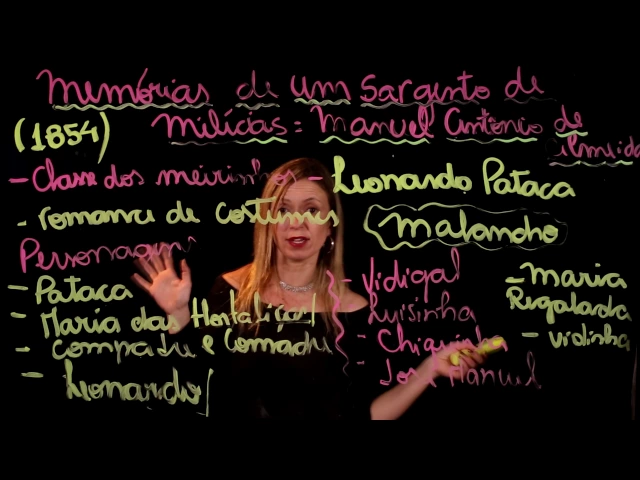 Memórias de um Sargento de
(1854) Milícias = Manuel Antônio de
Almeida
- Classe dos meirinhos - Leonardo Pataca
- romance de costumes
Malandro
Personagens
- Pataca
- Maria das Hortaliças
- Compadre e Comadre
- Leonardo
- Vidigal
Luisinha
- Chiquinha
- José Manuel
- Maria
Regalada
- Vidinha